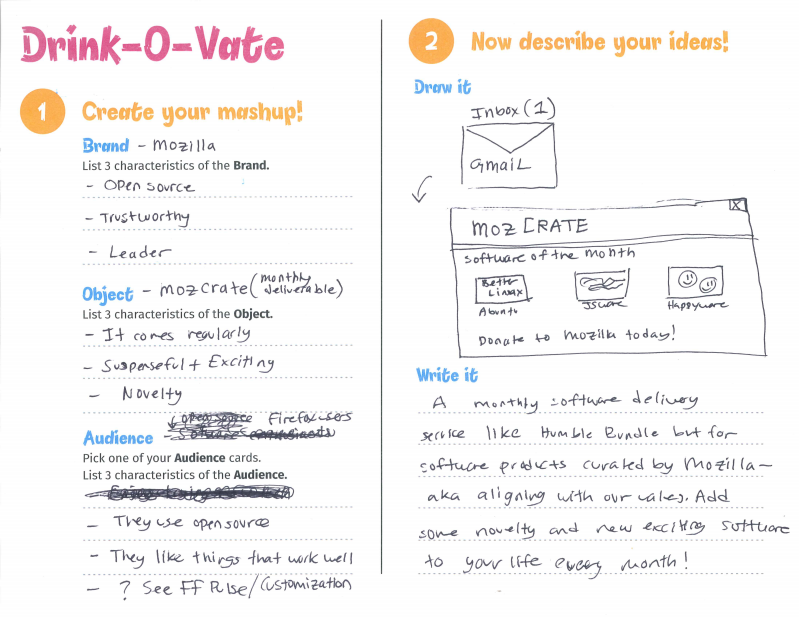 Drink-O-Vate
1 Create your mashup!
Brand - mozilla
List 3 characteristics of the Brand.
- Open source
- Trustworthy
- Leader
Object - mozcrate (monthly deliverable)
List 3 characteristics of the Object.
- It comes regularly
- Suspenseful + Exciting
- Novelty
Firefox users
Audience -
Pick one of your Audience cards.
List 3 characteristics of the Audience.
- They use open source
- They like things that work well
- ? See FF Pulse/Customization
2 Now describe your ideas!
Draw it
Inbox (1)
Gmail
X
moz CRATE
software of the month
Better
Linux
Abuntu
JSware
Happyware
Donate to mozilla today!
Write it
A monthly software delivery
service like Humble Bundle but for
software products curated by Mozilla -
aka aligning with our values. Add
some novelty and new exciting software
to your life every month!